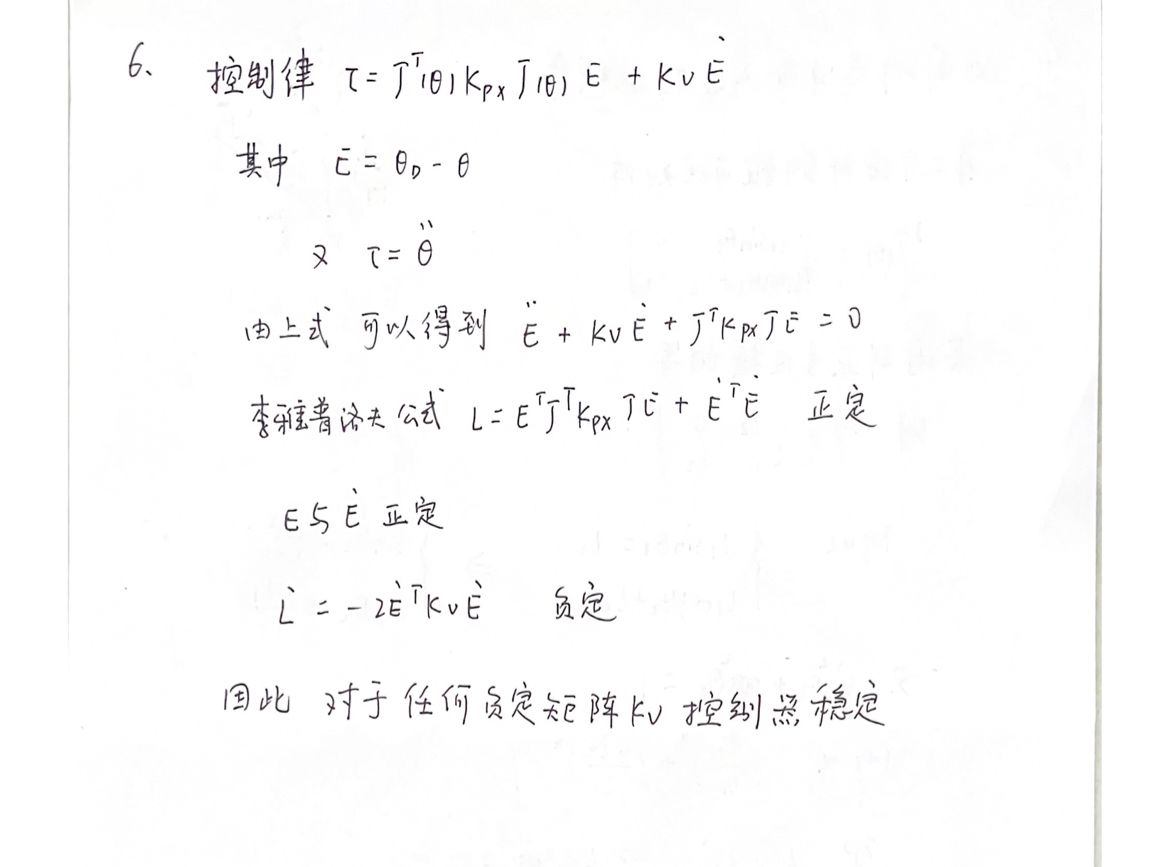 6、 控制律 τ = Jᵀ(θ) Kpx J(θ) E + Kv Ė
其中 E = θD - θ
又 τ = θ̈
由上式 可以得到 Ë + Kv Ė + JᵀKpx J E = 0
李雅普洛夫公式 L = EᵀJᵀKpx J E + ĖᵀĖ 正定
E与Ė 正定
L̇ = - 2ĖᵀKv Ė 负定
因此 对于任何负定矩阵Kv 控制器稳定